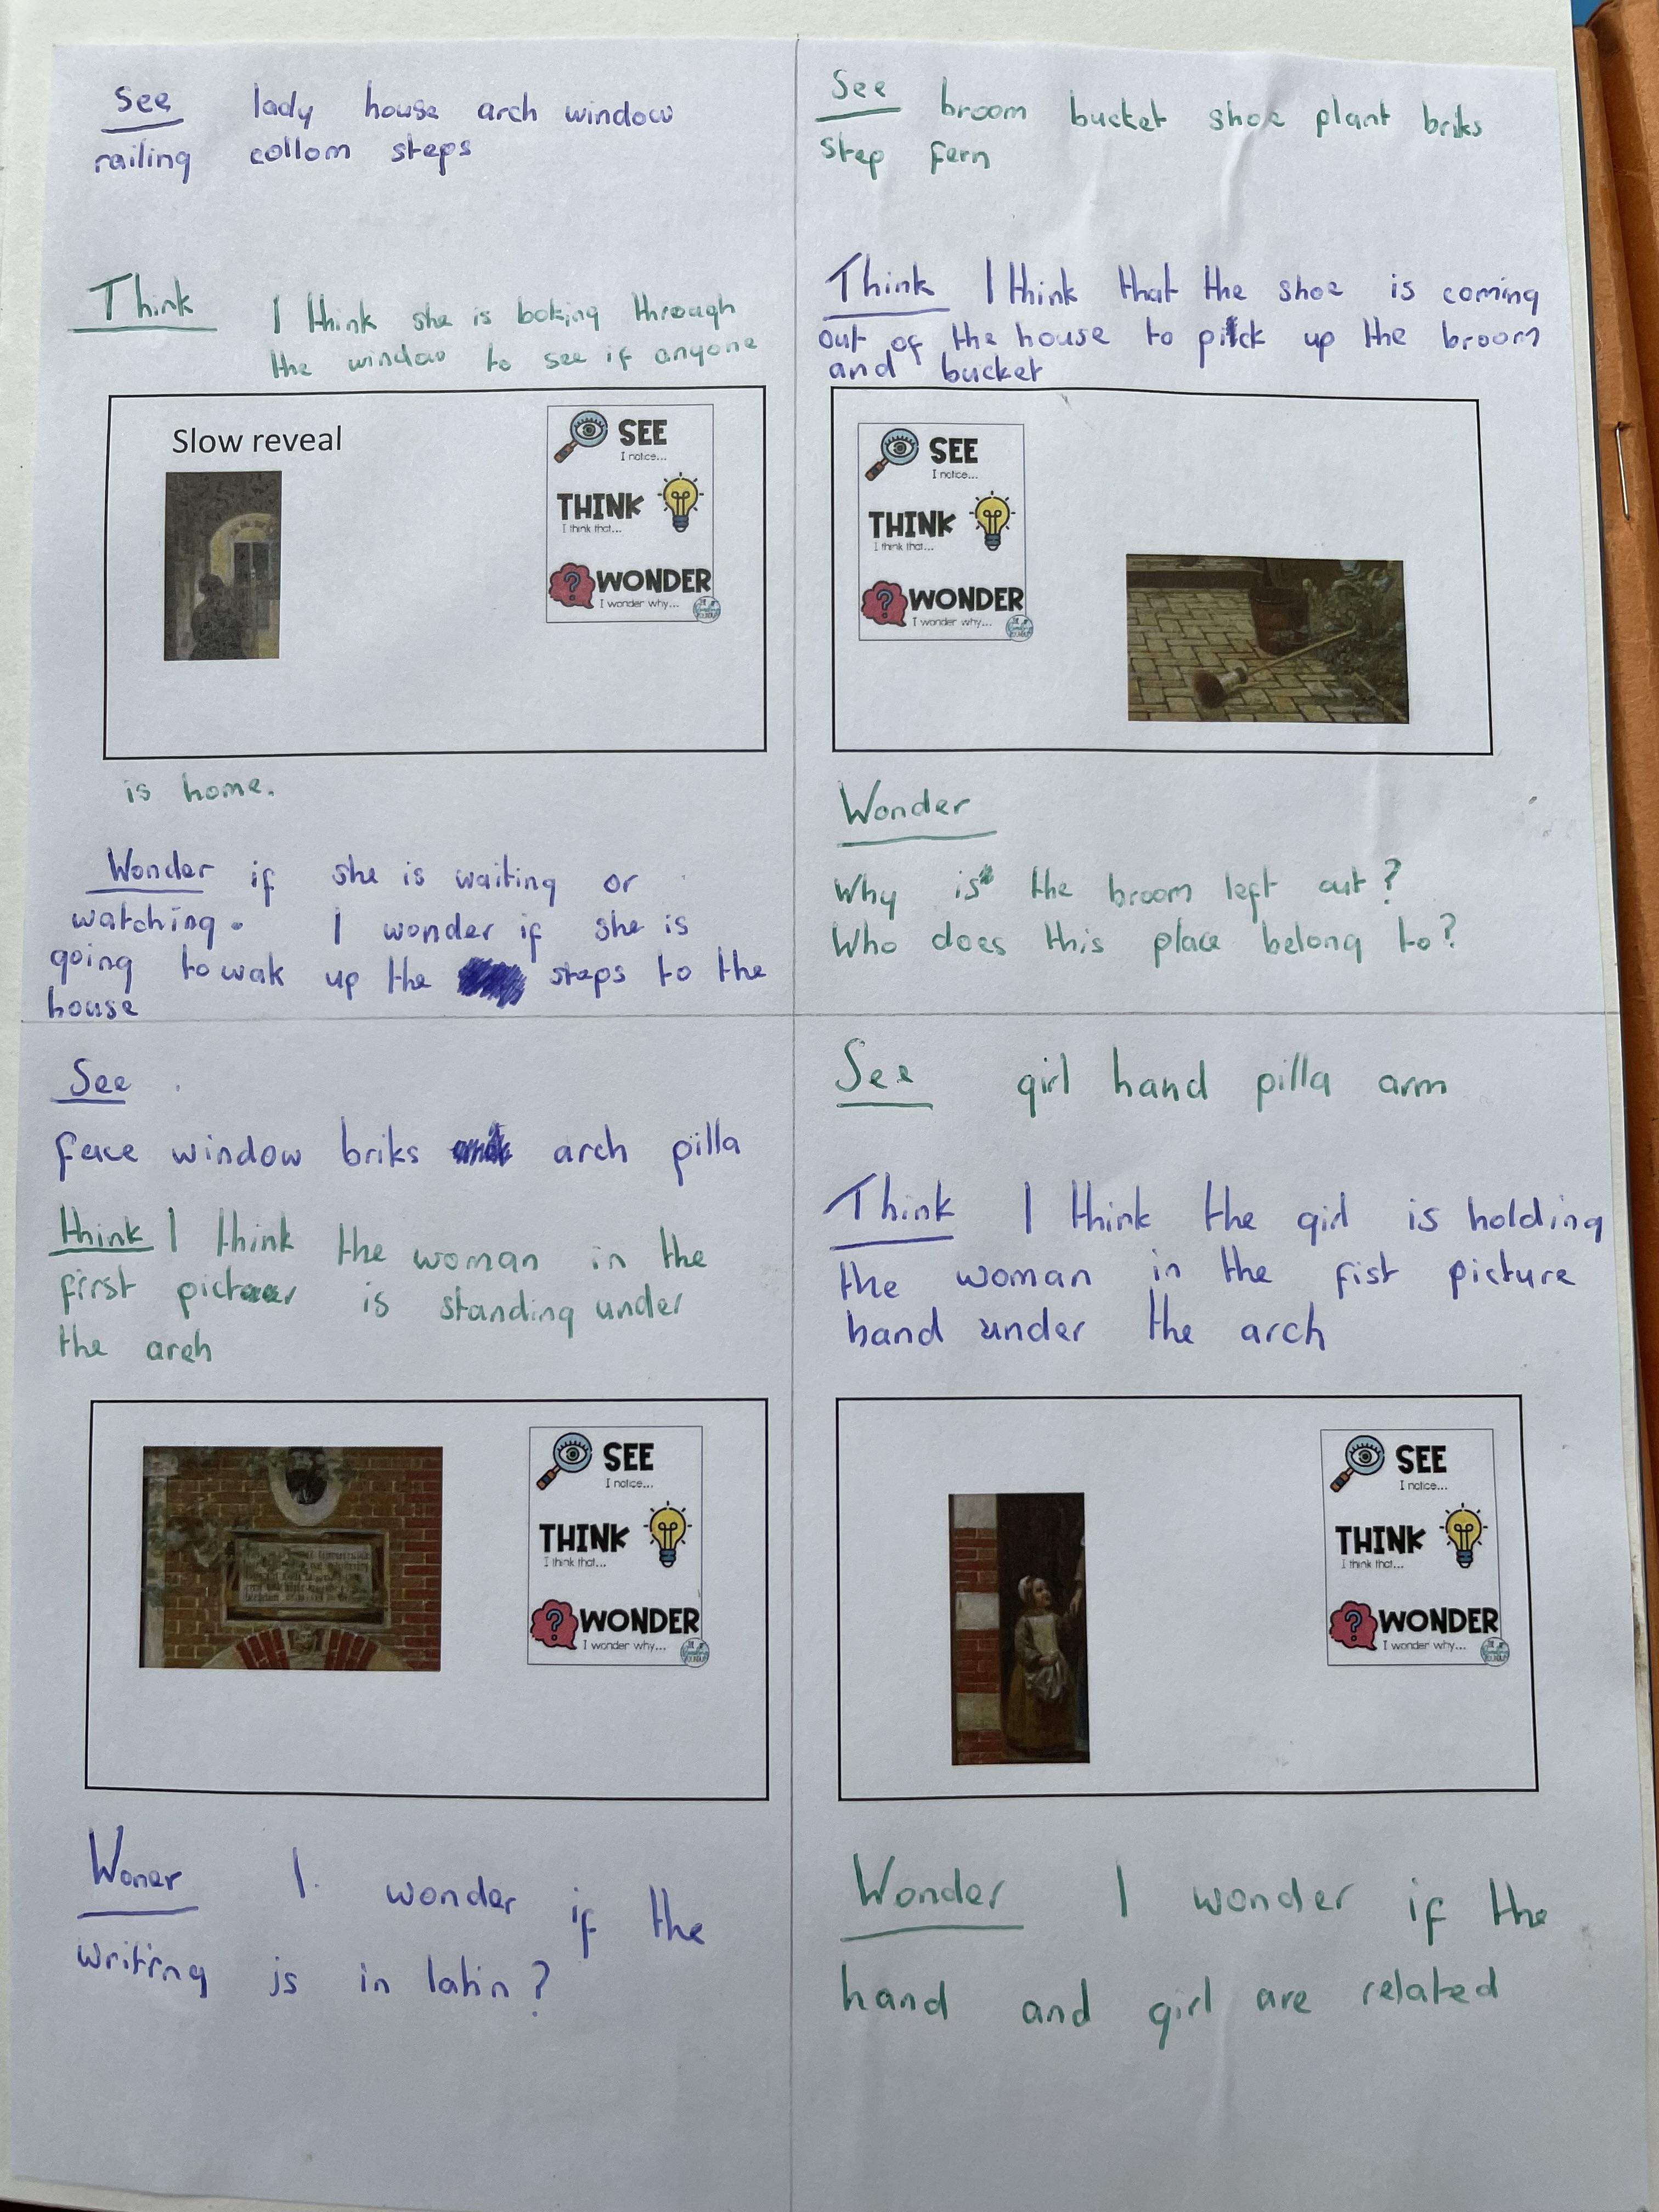 See lady house arch window
railing collom steps
Think I think she is looking through
the window to see if anyone
Slow reveal
SEE
I notice...
THINK
I think that...
WONDER
I wonder why...
is home.
Wonder if she is waiting or
watching. I wonder if she is
going to wak up the steps to the
house
See broom bucket shoe plant briks
step fern
Think I think that the shoe is coming
out of the house to pick up the broom
and bucket
SEE
I notice...
THINK
I think that...
WONDER
I wonder why...
Wonder
Why is the broom left out?
Who does this place belong to?
See
face window briks arch pilla
think I think the woman in the
first is standing under
the arch
SEE
I notice...
THINK
I think that...
WONDER
I wonder why...
Woner I wonder if the
writing is in latin?
See girl hand pilla arm
Think I think the girl is holding
the woman in the fist picture
hand under the arch
SEE
I notice...
THINK
I think that...
WONDER
I wonder why...
Wonder I wonder if the
hand and girl are related